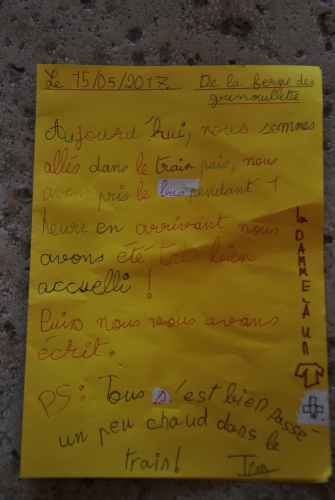 Le 15/05/2017 De la ferme des
grenouillette
Aujourd'hui, nous sommes
allés dans le train puis, nous
avons pris le bus pendant 1
heure en arrivant nous
avons été très bien
accueilli !
Puis nous vous avons
écrit.
PS: Tous s'est bien passé
un peu chaud dans le
train!
la DAMME À UN